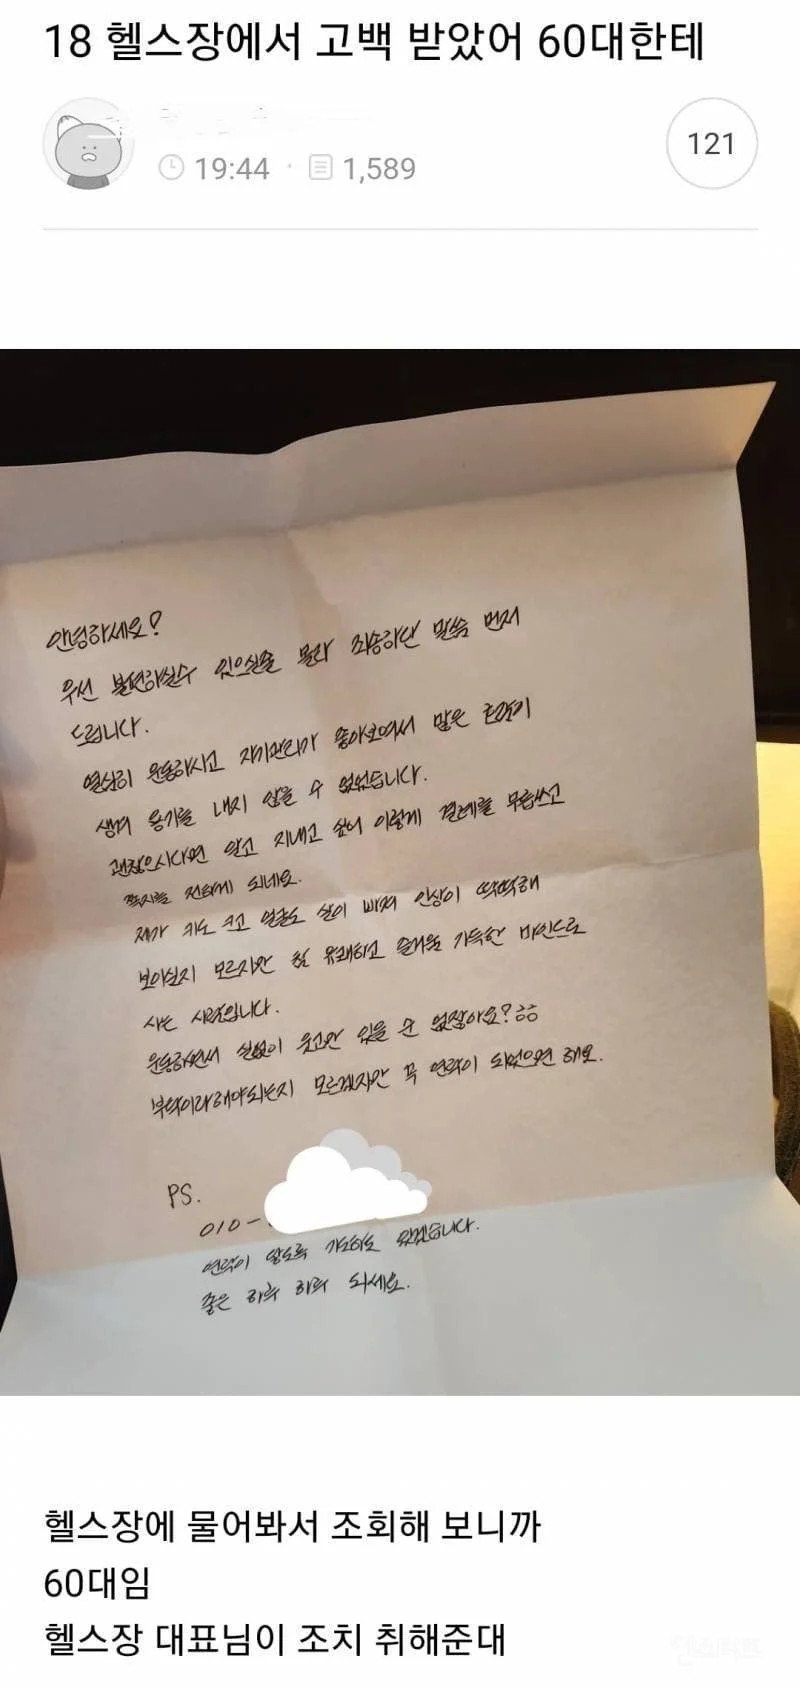 18 헬스장에서 고백 받았어 60대한테
19:44 · 1,589
121
안녕하세요?
우선 불편하실수 있으실줄 몰라 죄송하단 말씀 먼저
드립니다.
열심히 운동하시고 자기관리가 좋아보여서 많은 호감이
생겨 용기를 내지 않을 수 없었습니다.
괜찮으시다면 알고 지내고 싶어 이렇게 결례를 무릅쓰고
쪽지를 전하게 되네요.
제가 키도 크고 얼굴도 살이 빠져 인상이 딱딱해
보이실지 모르지만 참 유쾌하고 즐거움 가득한 마인드로
사는 사람입니다.
운동하면서 실없이 웃고만 있을 순 없잖아요? ㅎㅎ
부탁이라해야되는지 모르겠지만 꼭 연락이 되었으면 해요.
PS.
010-
연락이 않도록 기다리고 있겠습니다.
좋은 하루 하루 되세요.
헬스장에 물어봐서 조회해 보니까
60대임
헬스장 대표님이 조치 취해준대